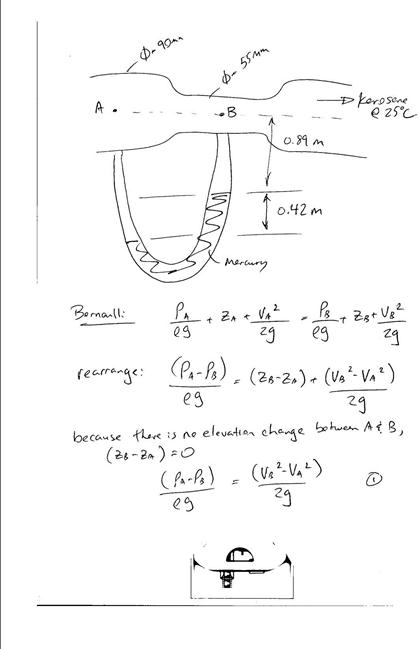 ϕ-90mm
ϕ-55mm
A
B
Kerosene
@ 25°C
0.89 m
0.42 m
Mercury
Bernoulli: P_A/ρg + Z_A + V_A²/2g = P_B/ρg + Z_B + V_B²/2g
rearrange: (P_A-P_B)/ρg = (Z_B-Z_A) + (V_B²-V_A²)/2g
because there is no elevation change between A & B,
(Z_B-Z_A) = 0
(P_A-P_B)/ρg = (V_B²-V_A²)/2g ①